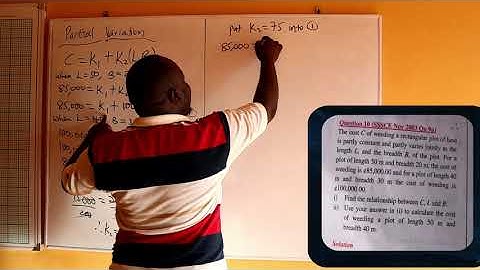 Partial Variation
C = K₁ + K₂(LB)
when L = 50, B = 2
85,000 = K₁ + K₂
85,000 = K₁ + 100
when L = 4
100,
∴ K₂
put K₂ = 75 into ①
85,000 =
Question 10 (SSSCE Nov 2003 Qu 9a)
The cost C of weeding a rectangular plot of land
is partly constant and partly varies jointly as the
length L, and the breadth B, of the plot. For a
plot of length 50 m and breadth 20 m, the cost of
weeding is ¢85,000.00 and for a plot of length 40
m and breadth 30 m the cost of weeding is
¢100,000.00.
i) Find the relationship between C, L and B.
ii) Use your answer in (i) to calculate the cost
of weeding a plot of length 50 m and
breadth 40 m.
Solution